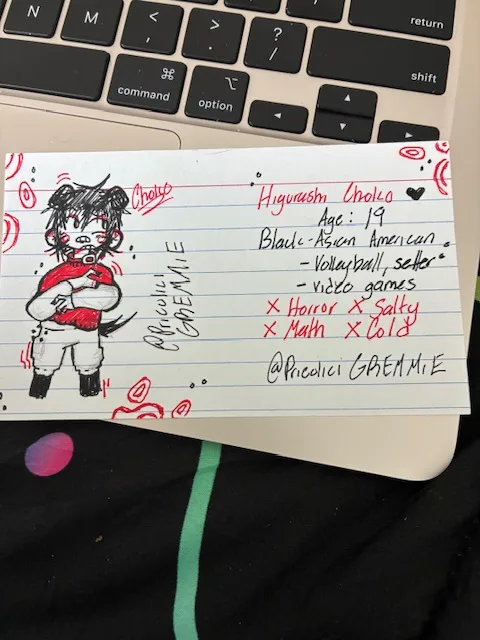 N
M
<
,
>
.
?
/
return
⌘
command
⌥
option
shift
◄
▲
▼
►
Choko
@Pricolici
GREMMiE
Higurashi Choko ♥
Age: 19
Black-Asian American
- Volleyball, setter
- video games
X Horror X Salty
X Math X Cold
@Pricolici GREMMiE